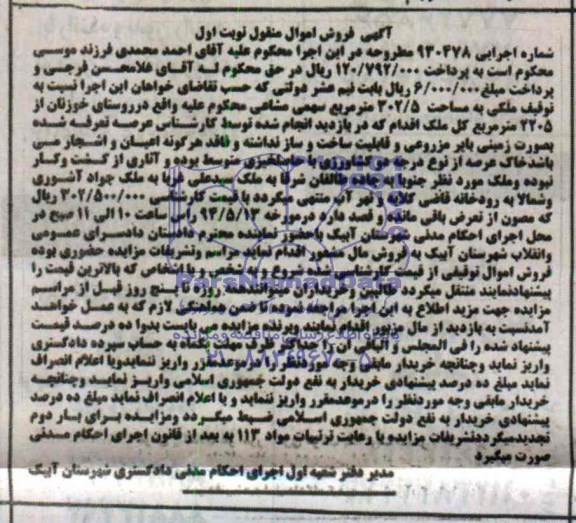 آگهی فروش اموال منقول نوبت اول
شماره اجرایی ۹۳۰۴۷۸ مطروحه در این اجرا محکوم علیه آقای احمد محمدی فرزند موسی
محکوم است به پرداخت ۱۲۰/۷۹۲/۰۰۰ ریال در حق محکوم له آقای غلامحسن فرجی و
پرداخت مبلغ ۶/۰۰۰/۰۰۰ ریال بابت نیم عشر دولتی که حسب تقاضای خواهان این اجرا نسبت به
توقیف ملکی به مساحت ۳۰۲/۵ مترمربع سهمی مشاعی محکوم علیه واقع درروستای خوزنان از
۲۲۰۵ مترمربع کل ملک اقدام که در بازدید انجام شده توسط کارشناس عرصه تعرفه شده
بصورت زمینی بایر مزروعی و قابلیت ساخت و ساز نداشته و فاقد هرگونه اعیان و اشجار می
باشدخاک عرصه از نوع درجه دو کشاورزی با حاصلخیزی متوسط بوده و آثاری از کشت وکار
نبوده وملک مورد نظر جنوبا به جاده طالقان شرقا به ملک سیدعلی غربا به ملک جواد آشوری
وشمالا به رودخانه قاضی کلایه و نهر آب منتهی میگردد با قیمت کارشناسی ۳۰۲/۵۰۰/۰۰۰ ریال
که مصون از تعرض باقی مانده و قصد دارد درمورخه ۹۴/۵/۱۳ راس ساعت ۱۰ الی ۱۱ صبح در
محل اجرای احکام مدنی شهرستان آبیک باحضور نماینده محترم دادستان دادسرای عمومی
وانقلاب شهرستان آبیک به فروش مال مذکور اقدام نماید مراسم وتشریفات مزایده حضوری بوده
فروش اموال توقیفی از قیمت کارشناسی شده شروع و به شخص و یا اشخاص که بالاترین قیمت را
پیشنهادنمایند منتقل میگردد طالبین وخریداران میتوانندهمه روزه تا پنج روز قبل از مراسم
مزایده جهت مزید اطلاع به این اجرا مراجعه نموده تا ضمن هماهنگی لازم که به عمل خواهد
آمدنسبت به بازدید از مال مزبور اقدام نمایند وبرنده مزایده می بایست بدوا ده درصد قیمت
پیشنهاد شده را فی المجلس و الباقی آن را حداکثر ظرف به حساب سپرده دادگستری
واریز نماید وچنانچه خریدار مابقی وجه موردنظر را درموعدمقرر واریز ننمایدویا اعلام انصراف
نماید مبلغ ده درصد پیشنهادی خریدار به نفع دولت جمهوری اسلامی واریز نماید وچنانچه
خریدار مابقی وجه موردنظر را درموعدمقرر واریز ننماید و یا اعلام انصراف نماید مبلغ ده درصد
پیشنهادی خریدار به نفع دولت جمهوری اسلامی ضبط میگردد ومزایده برای بار دوم
تجدیدمیگرددتشریفات مزایده با رعایت ترتیبات مواد ۱۱۳ به بعد از قانون اجرای احکام مدنی
صورت میگیرد
مدیر دفتر شعبه اول اجرای احکام مدنی دادگستری شهرستان آبیک